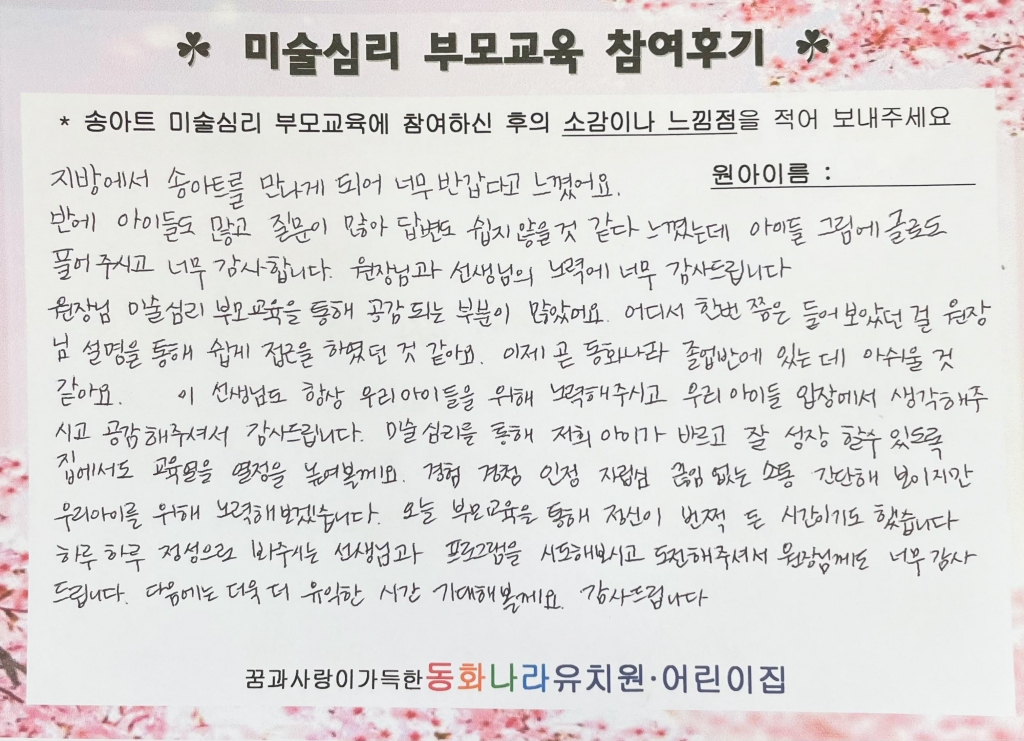 ☘ 미술심리 부모교육 참여후기 ☘
* 송아트 미술심리 부모교육에 참여하신 후의 소감이나 느낌점을 적어 보내주세요
원아이름 :
지방에서 송아트를 만나게 되어 너무 반갑다고 느꼈어요.
반에 아이들도 많고 질문이 많아 답변도 쉽지 않을 것 같다 느꼈는데 아이들 그림에 글로도
풀어 주시고 너무 감사합니다. 원장님과 선생님의 노력에 너무 감사드립니다
원장님 미술심리 부모교육을 통해 공감되는 부분이 많았어요. 어디서 한번 쯤은 들어 보았던 걸 원장
님 설명을 통해 쉽게 접근을 하였던 것 같아요. 이제 곧 동화나라 졸업반에 있는데 아쉬울 것
같아요. 이 선생님도 항상 우리아이들을 위해 노력해주시고 우리 아이들 입장에서 생각해주
시고 공감해주셔서 감사드립니다. 미술심리를 통해 저희 아이가 바르고 잘 성장 할수 있도록
집에서도 교육열을 열정을 높여볼께요. 경험 경청 인정 자립심 끊임 없는 소통 간단해 보이지만
우리아이를 위해 노력해보겠습니다. 오늘 부모교육을 통해 정신이 번쩍 든 시간이기도 했습니다
하루 하루 정성으로 봐주시는 선생님과 프로그램을 시도해보시고 도전해주셔서 원장님께도 너무 감사
드립니다. 다음에는 더욱 더 유익한 시간 기대해볼께요. 감사드립니다
꿈과사랑이가득한동화나라유치원·어린이집